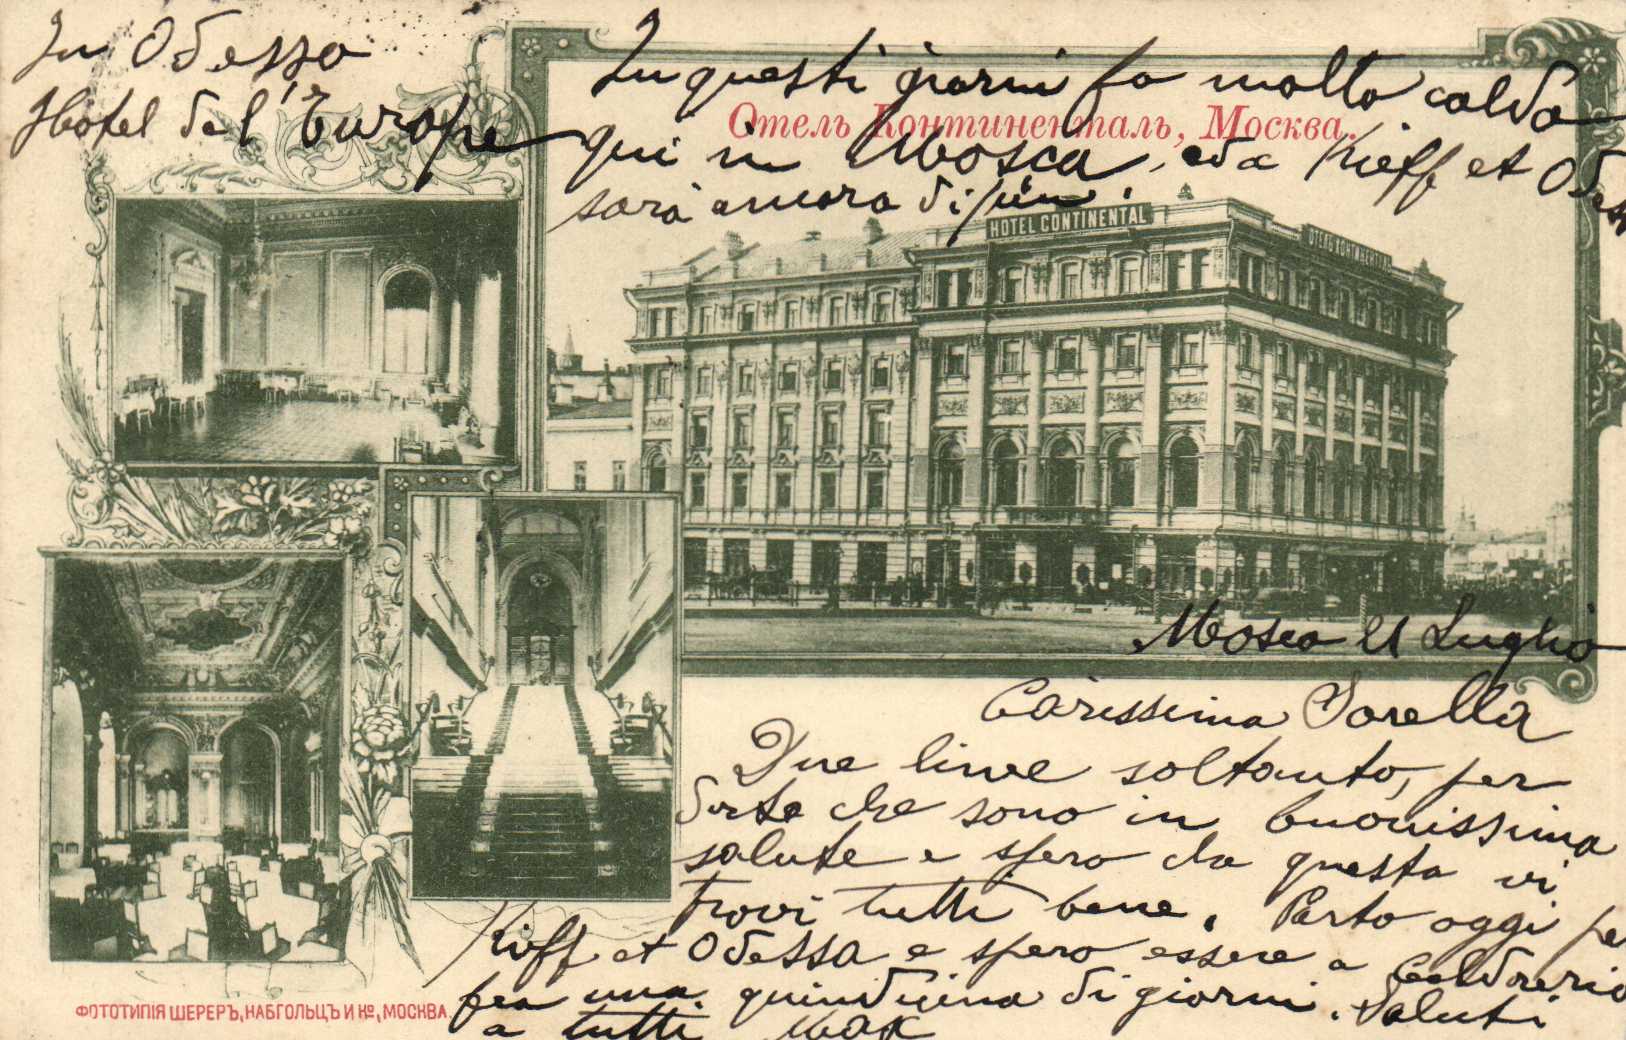 In Odessa
Hotel de l'Europe
In questi giorni fa molto caldo
Отель Континенталь, Москва.
qui in Mosca, ed a Kieff et Odessa
sarà ancora di più.
HOTEL CONTINENTAL
ОТЕЛЬ КОНТИНЕНТАЛЬ
Mosca 21 Luglio
Carissima Sorella
Due linee soltanto, per
dirte che sono in buonissima
salute e spero che questa vi
trovi tutti bene. Parto oggi per
Kieff et Odessa e spero essere a
fra una quindicina di giorni. Saluti
a tutti Max
ФОТОТИПІЯ ШЕРЕРЪ, НАБГОЛЬЦЪ И Ко, МОСКВА.